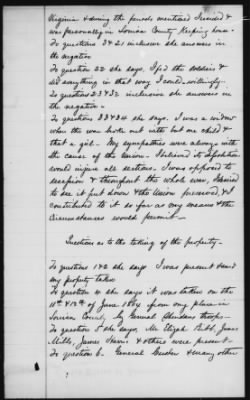 Virginia & during the periods mentioned I resided &
was personally in Louisa County Keeping house.
To questions 3 & 21 inclusive she answers in
the negative
To question 22 she says, I fed the soldiers &
did everything in that way I could willingly.
To questions 23 & 32 inclusive she answers in
the negative.
To questions 33 & 34 she says. I was a widow
when the war broke out with but one child &
that a girl. My sympathies were always with
the cause of the Union. I believed its
would injure all sections. I was opposed to
secession & throughout the whole war, I desired
to see it put down & the Union preserved, & I
contributed to it so far as my means & the
Circumstances would permit.
Questions as to the taking of the property.
To questions 1 & 2 she says I was present & saw
my property taken
To question 4 she says it was taken on the
11th & 12th of June 1864 from my place in
Louisa County, by General Sheridans troops.
To question 5 she says, Mr Elijah
Mills, James & others were present.
To question 6. General & many other